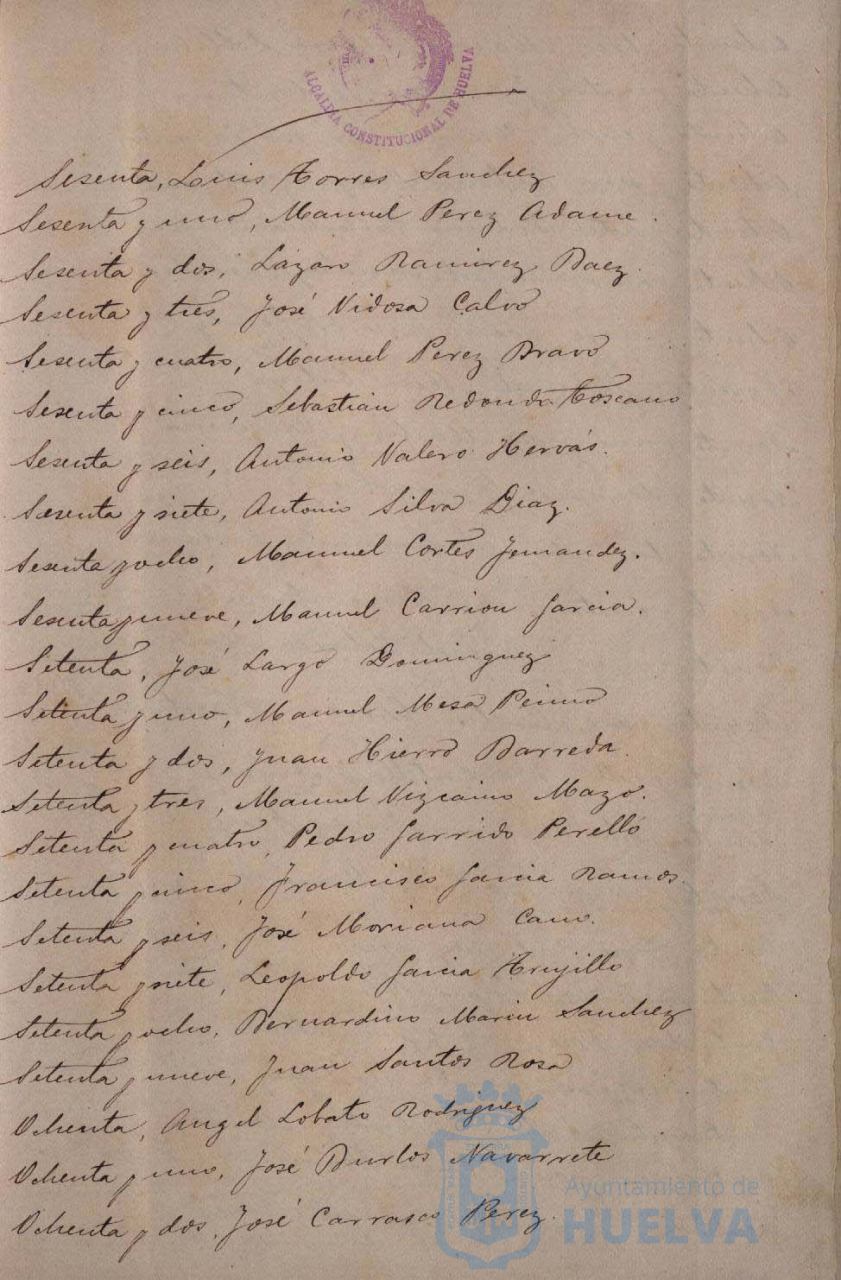 ALCALDIA CONSTITUCIONAL DE HUELVA
Sesenta, Luis Torres Sanchez
Sesenta y uno, Manuel Perez Adame.
Sesenta y dos, Lázaro Ramirez Baez.
Sesenta y tres, José Vidosa Calvo
Sesenta y cuatro, Manuel Perez Bravo
Sesenta y cinco, Sebastián Redondo Toscano
Sesenta y seis, Antonio Valero Hervás.
Sesenta y siete, Antonio Silva Diaz.
Sesenta y ocho, Manuel Cortes Fernandez.
Sesenta y nueve, Manuel Carrion Garcia.
Setenta, José Largo Dominguez
Setenta y uno, Manuel Mesa
Setenta y dos, Juan Hierro Barreda.
Setenta y tres, Manuel Vizcaino Mazo.
Setenta y cuatro, Pedro Garrido Perelló
Setenta y cinco, Francisco Garcia Ramos.
Setenta y seis, José Moriana Cano.
Setenta y siete, Leopoldo Garcia Trujillo
Setenta y ocho, Bernardino Marin Sanchez
Setenta y nueve, Juan Santos Rosa
Ochenta, Angel Lobato Rodriguez
Ochenta y uno, José Burlos Navarrete
Ochenta y dos, José Carrasco Perez.
Ayuntamiento de
HUELVA